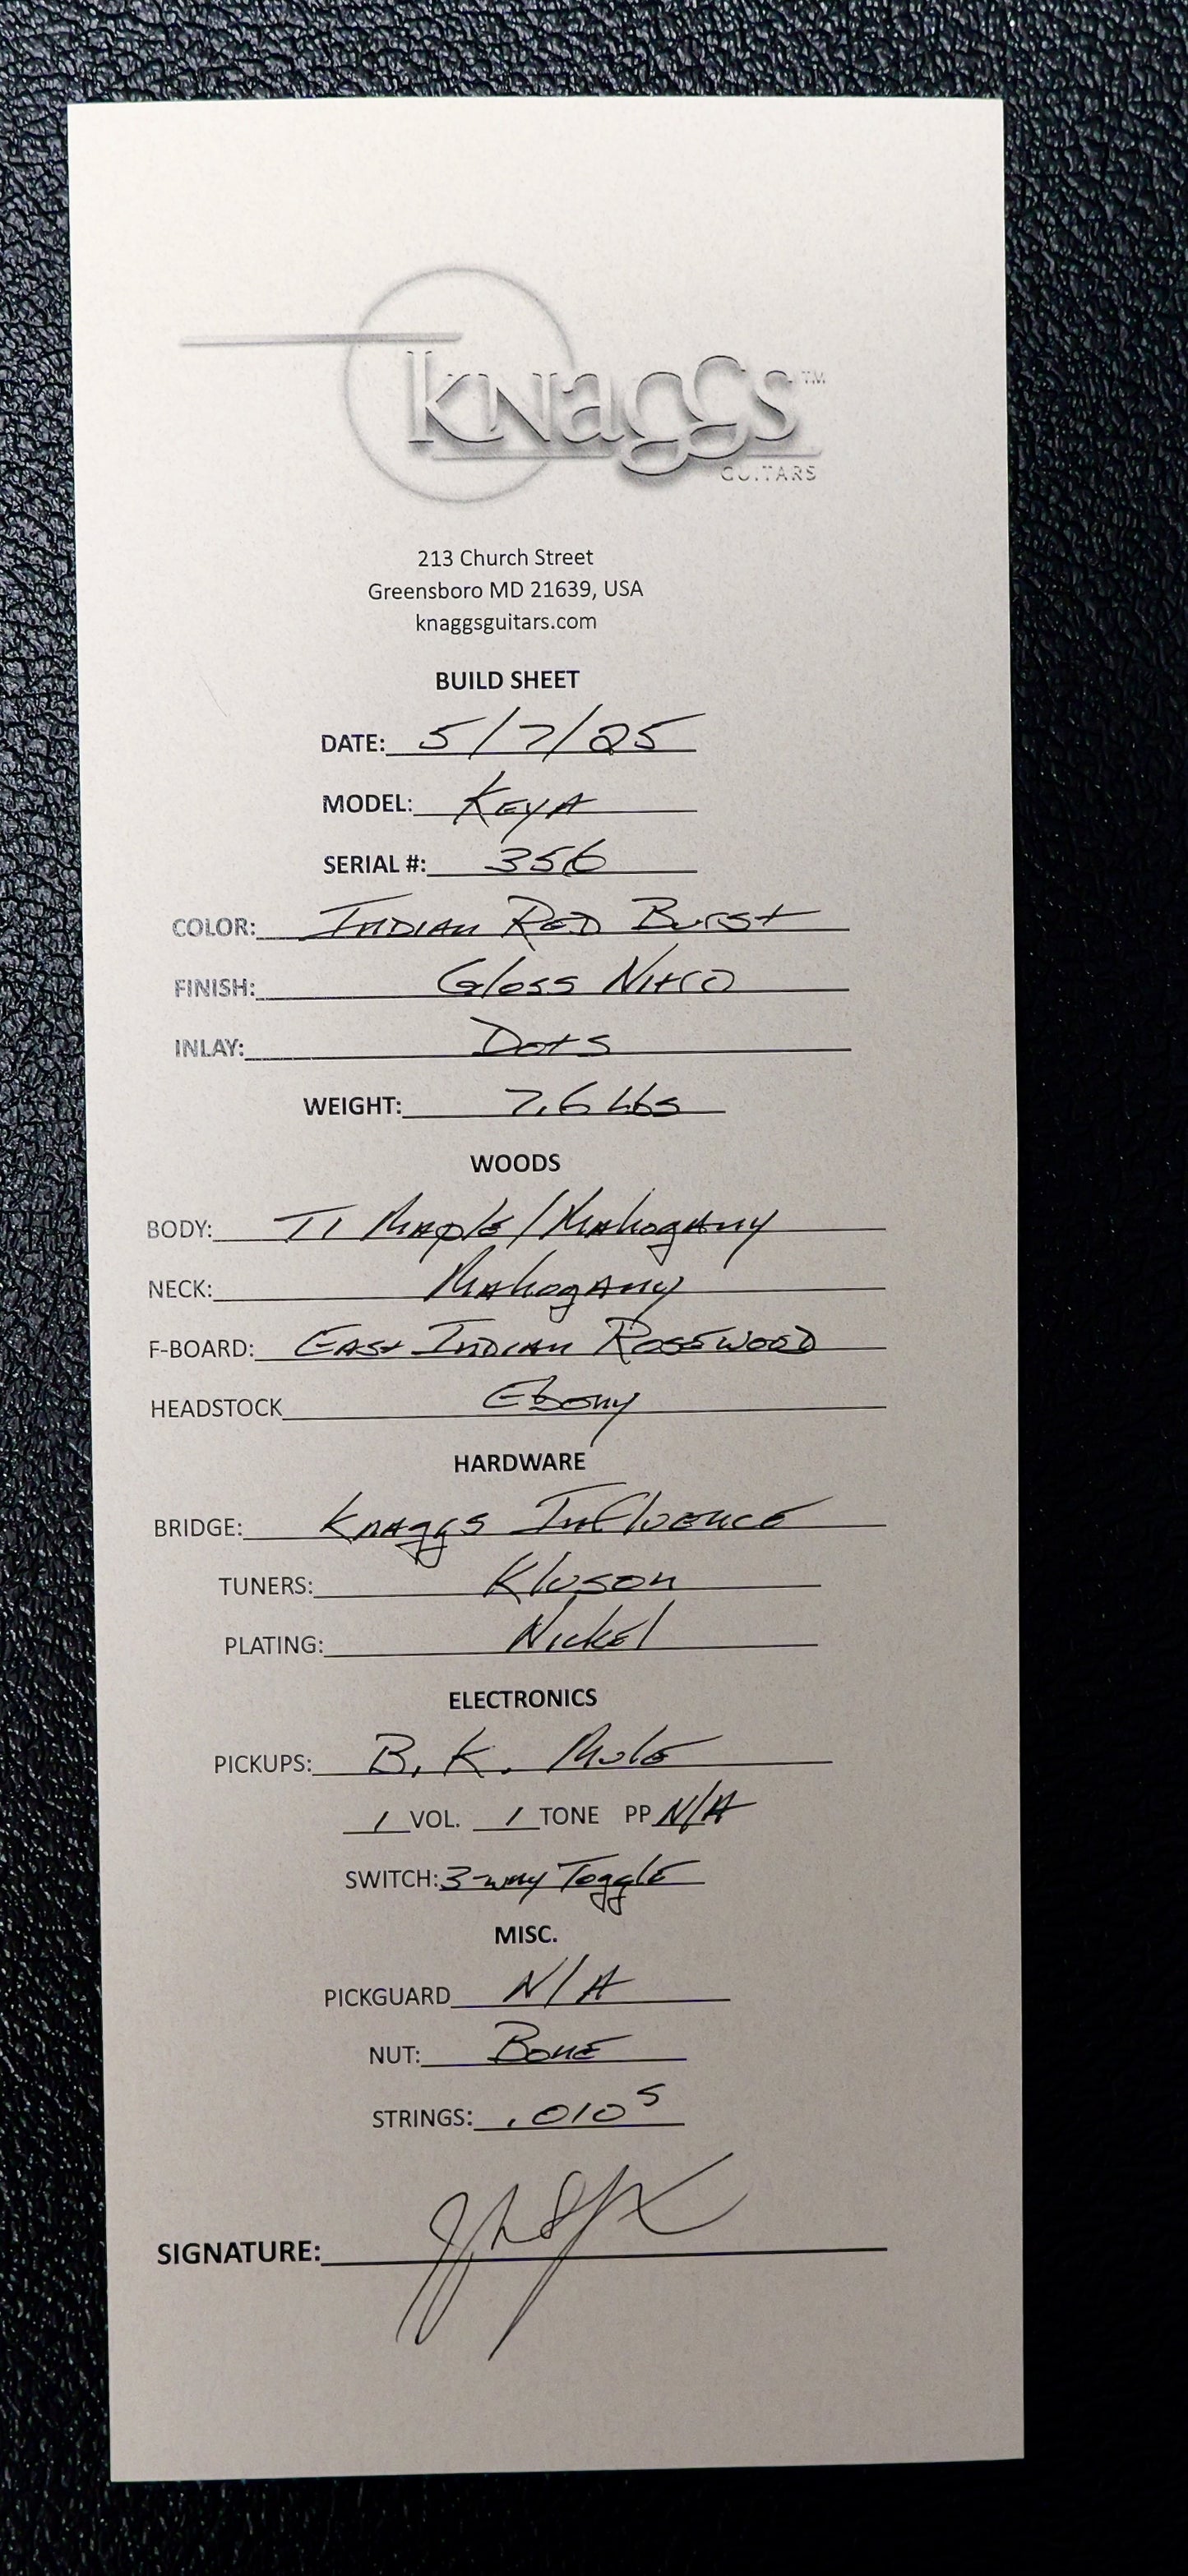 Knaggs™
GUITARS
213 Church Street
Greensboro MD 21639, USA
knaggsguitars.com
BUILD SHEET
DATE: 5/7/25
MODEL: KEYA
SERIAL #: 356
COLOR: INDIAN RED BURST
FINISH: Gloss Nitro
INLAY: Dots
WEIGHT: 7.6 Lbs
WOODS
BODY: T1 Maple/Mahogany
NECK: Mahogany
F-BOARD: EAST INDIAN ROSEWOOD
HEADSTOCK Ebony
HARDWARE
BRIDGE: Knaggs Influence
TUNERS: Kluson
PLATING: Nickel
ELECTRONICS
PICKUPS: B.K. Mule
1 VOL. 1 TONE PP N/A
SWITCH: 3-way Toggle
MISC.
PICKGUARD N/A
NUT: BONE
STRINGS: .010s
SIGNATURE: